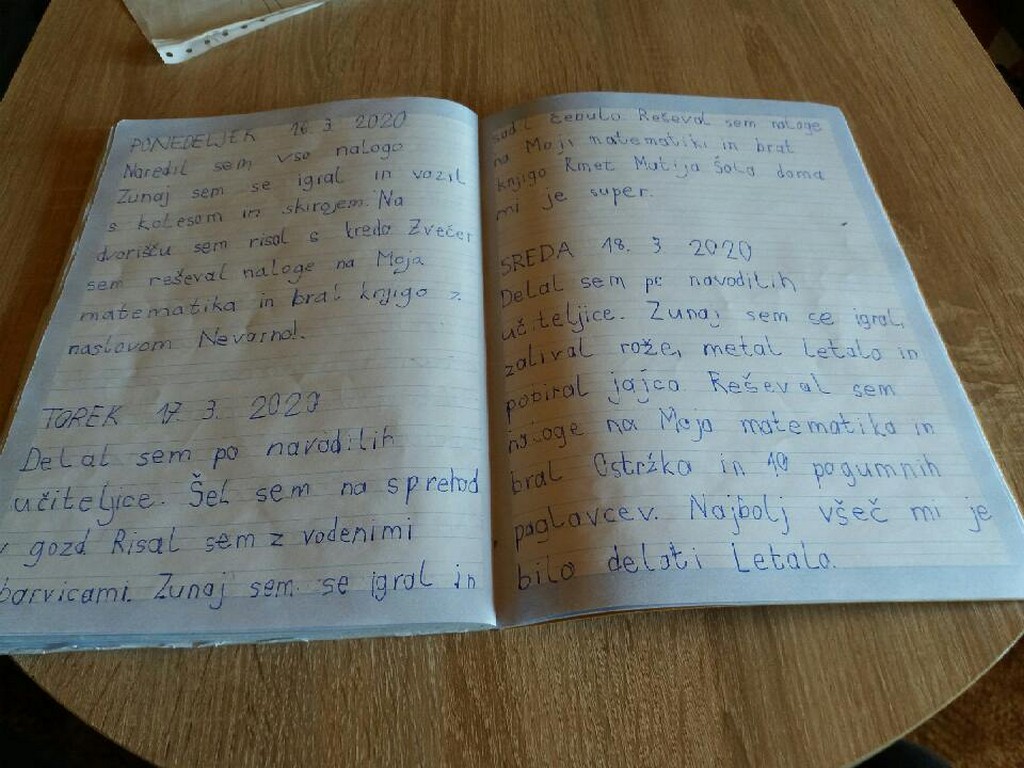 PONEDELJEK 16. 3. 2020
Naredil sem vso nalogo
Zunaj sem se igral in vozil
s kolesom in skirojem. Na
dvorišču sem risal s kredo Zvečer
sem reševal naloge na Moja
matematika in bral knjigo z
naslovom Nevarno!.
TOREK 17. 3. 2020
Delal sem po navodilih
učiteljice. Šel sem na sprehod
v gozd Risal sem z vodenimi
barvicami. Zunaj sem se igral in
sadil čebulo Reševal sem naloge
na Moji matematiki in bral
knjigo Kmet Matija Šola doma
mi je super.
SREDA 18. 3. 2020
Delal sem po navodilih
učiteljice. Zunaj sem se igral,
zalival rože, metal letalo in
pobiral jajca Reševal sem
naloge na Moja matematika in
bral Ostržka in 10 pogumnih
paglavcev. Najbolj všeč mi je
bilo delati letalo.